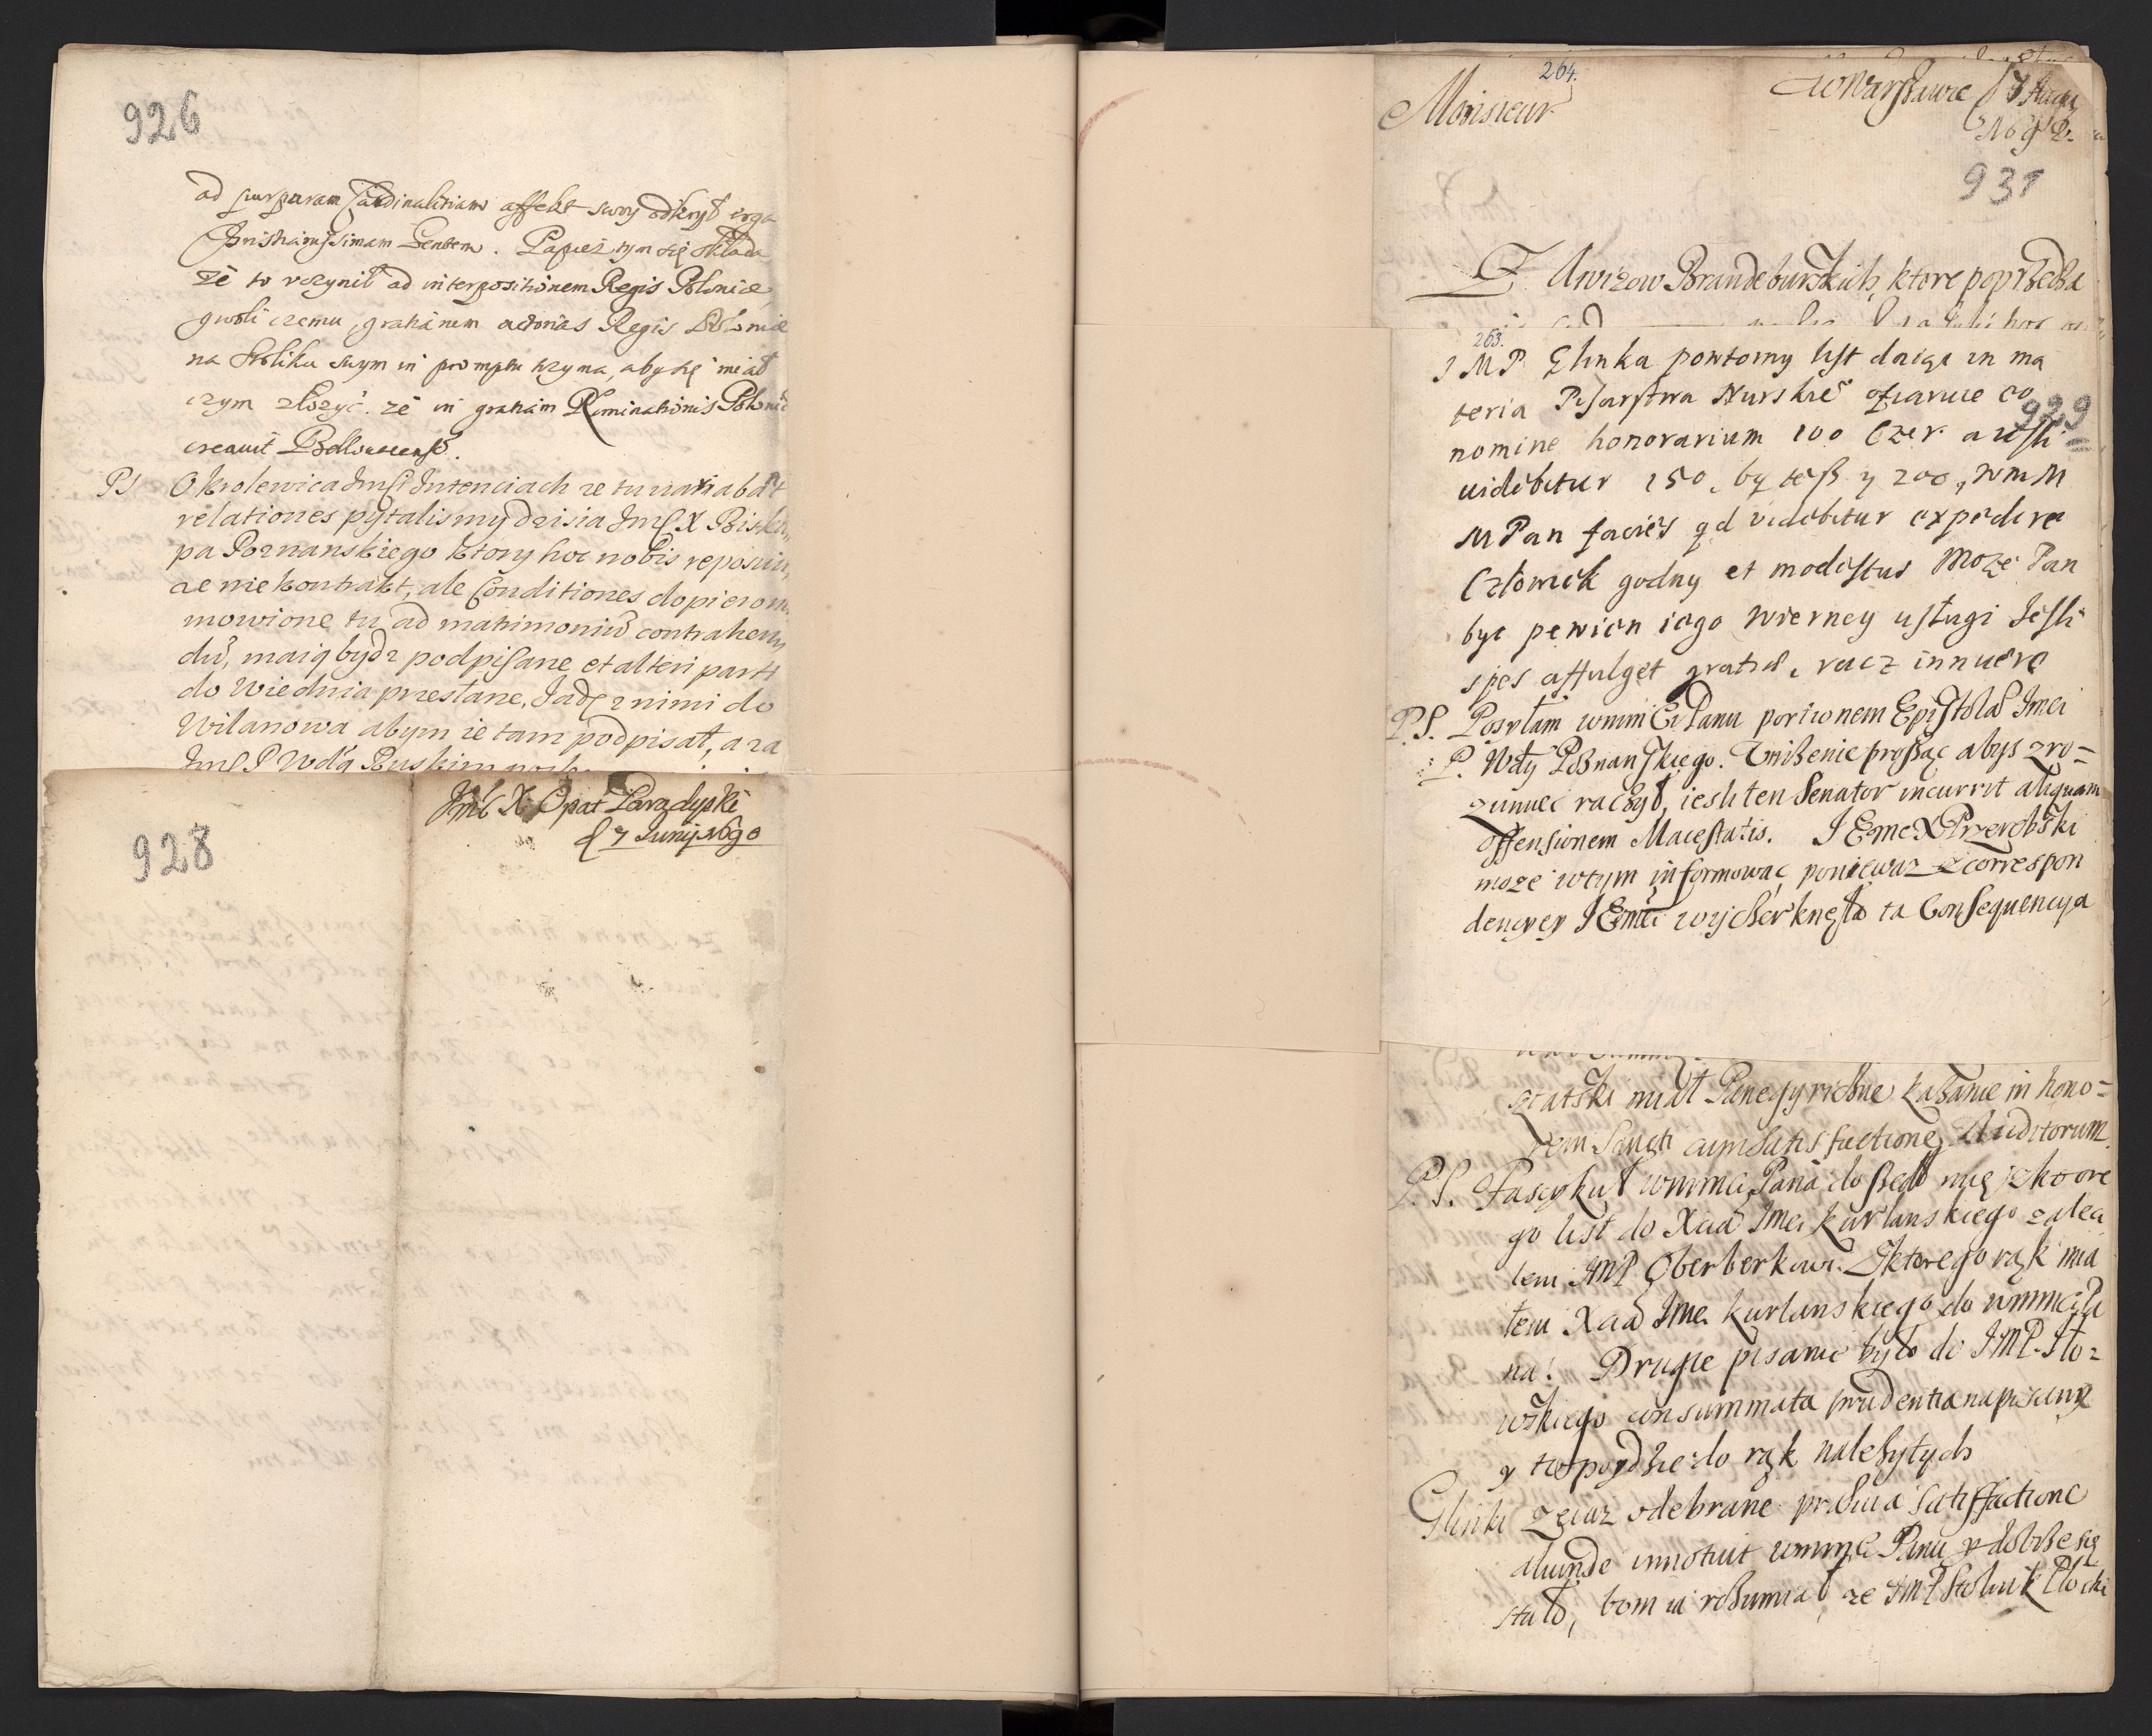 926
ad purpuram Cardinalitiam affekt swoy odkrył erga
Christianissimam Gentem. Papież tym się składa
że to uczynił ad interpositionem Regis Poloniæ,
gwoli czemu, gratiarum actorias Regis Poloniæ
na stoliku swym in promptu trzyma, aby się miał
czym złożyć. że in gratiam Nominationis Poloniæ
creavit
PS O Krolewica Jmści Intenciach ze tu
relationes pytalismy dzisia Jmś X Bisku
pa Poznanskiego ktory hoc nobis reposuit,
ze nie kontrakt, ale Conditiones dopiero
mowione tu ad matrimoniū contrahen
dū, maią bydz podpisane et alteri parti
do Wiednia przesłane, Jadę z nimi do
Wilanowa abym ie tam podpisał, a za
Jmś P Wdą Ruskim
928
Jmć X Opat Paradyski
d 7 Junij 1690
264.
Monsieur
w Warszawie 17 Aug
1692.
931
Z Awizow Brandeburskich, ktore poprzedza
263.
J M P Glinka powtorny list daię in ma
teria Pisarstwa Nurskie ofiaruie eo
929
nomine honorarium 100 Czer. a iesli
videbitur 150, by tesz y 200, W m M
M Pan facies qd videbitur expedire
Człowiek godny et modestus Może Pan
byc pewien iego wierney usługi Jesli
spes affulget gratiæ, racz innuere
P.S. Posyłam wmm Panu portionem Epistolæ Jmci
P. Wdy Poznanskiego. Unizenie proszac abys zro=
zumiec raczył, iesli ten Senator incurrit aliquam
offensionem Maiestatis. J Emc X Przerębski
może wtym informować poniewaz z correspon
dencyey J Emci ta Consequencya
miał Panegyriczne kazanie in hono=
rem Sancti cum satisfactione Auditorum.
P.S. Fascykuł wmmci Pana doszedł mię z ktore
go list do Xcia Jmci kurlanskiego zaleci
łem JMP Oberberkowi. Z ktorego rąk mia
łem Xcia Jmci kurlanskiego do wmmci Pa
na. Drugie pisanie było do JMP.
consummata prudentia napisane
y to poydzie do rąk należytych
Glinki zeiaz odebrane satisfactione
aliunde innotuit wmmci Panu y dobrze się
stało, bom ia rozumiał ze JMP Stolnik Płocki